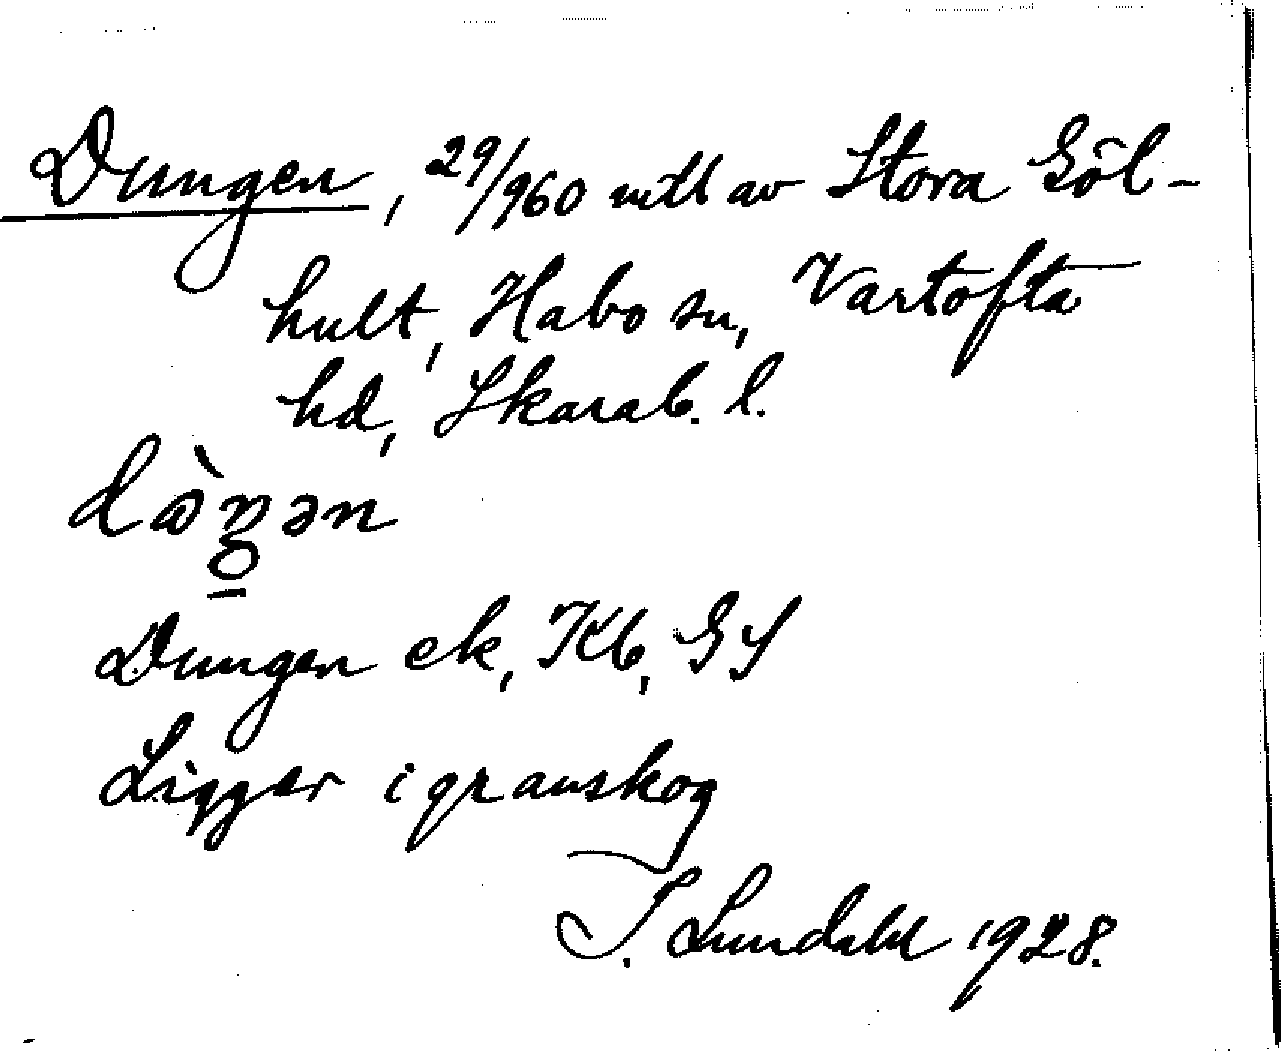 Dungen, 29/960 mtl av Stora Göl-
hult, Habo sn, Vartofta
hd, Skarab. l.
Dungen ek, Kb, GS
Ligger i granskog
I. Lundahl 1928.